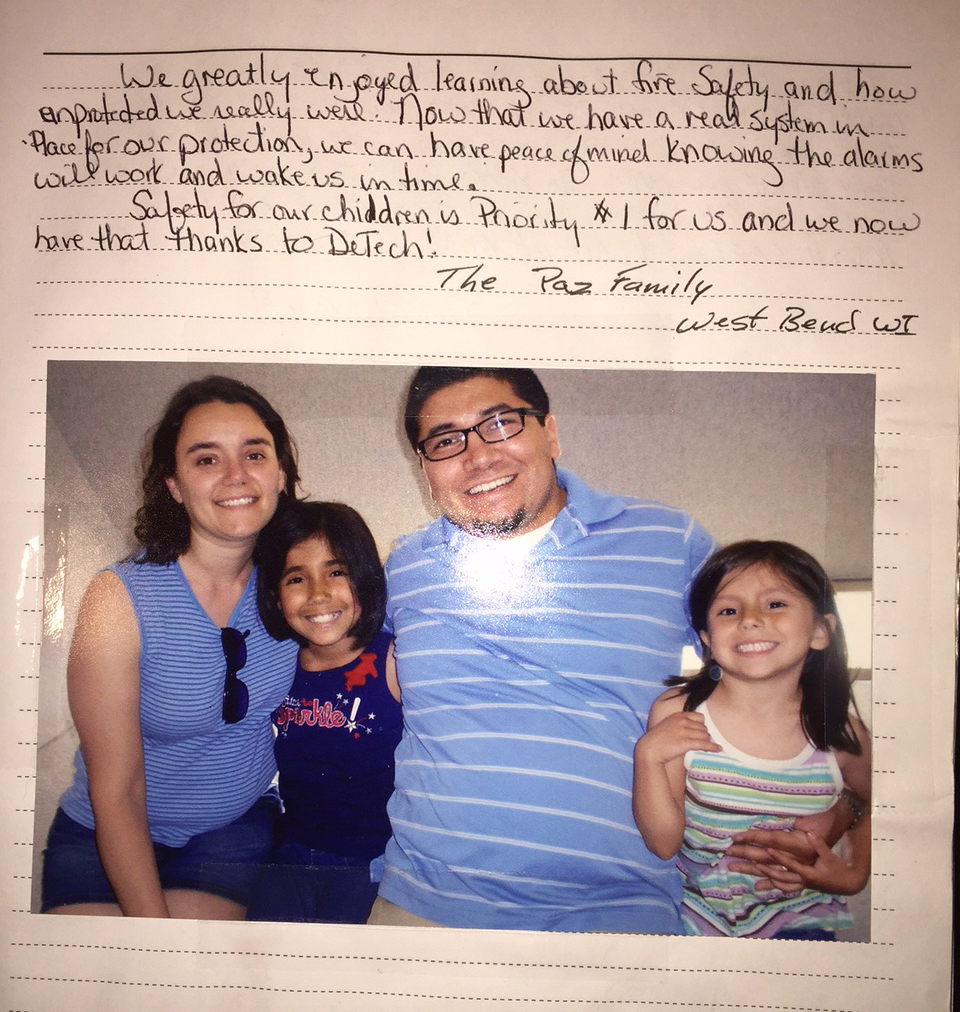 We greatly enjoyed learning about fire Safety and how
unprotected we really were. Now that we have a real system in
Place for our protection, we can have peace of mind knowing the alarms
will work and wake us in time.
Safety for our chiddren is Priority #1 for us and we now
have that thanks to DeTech!
The Paz Family
West Bend WI
sparkle!